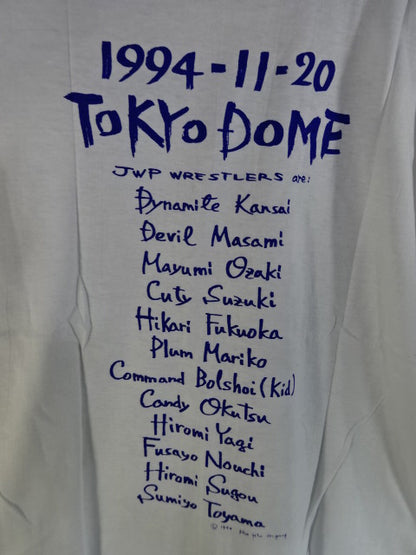 1994-11-20
TOKYO DOME
JWP WRESTLERS are:
Dynamite Kansai
Devil Masami
Mayumi Ozaki
Cuty Suzuki
Hikari Fukuoka
Plum Mariko
Command Bolshoi (Kid)
Candy Okutsu
Hiromi Yagi
Fusayo Nouchi
Hiromi Sugou
Sumiyo Toyama
© 1994